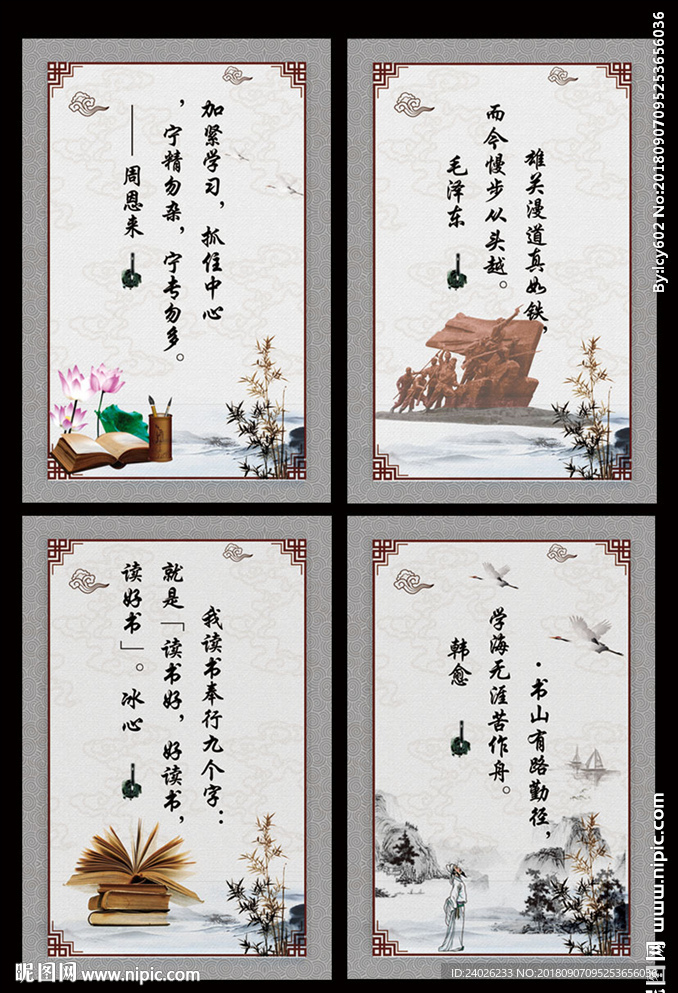 加紧学习，抓住中心
，宁精勿杂，宁专勿多。
——周恩来
雄关漫道真如铁，
而今慢步从头越。
毛泽东
我读书奉行九个字：
就是「读书好，好读书，
读好书」。冰心
·书山有路勤径，
学海无涯苦作舟。
韩愈
By:lcy602 No:20180907095253656036
昵图网 www.nipic.com
昵图网 www.nipic.com
ID:24026233 NO:20180907095253656036